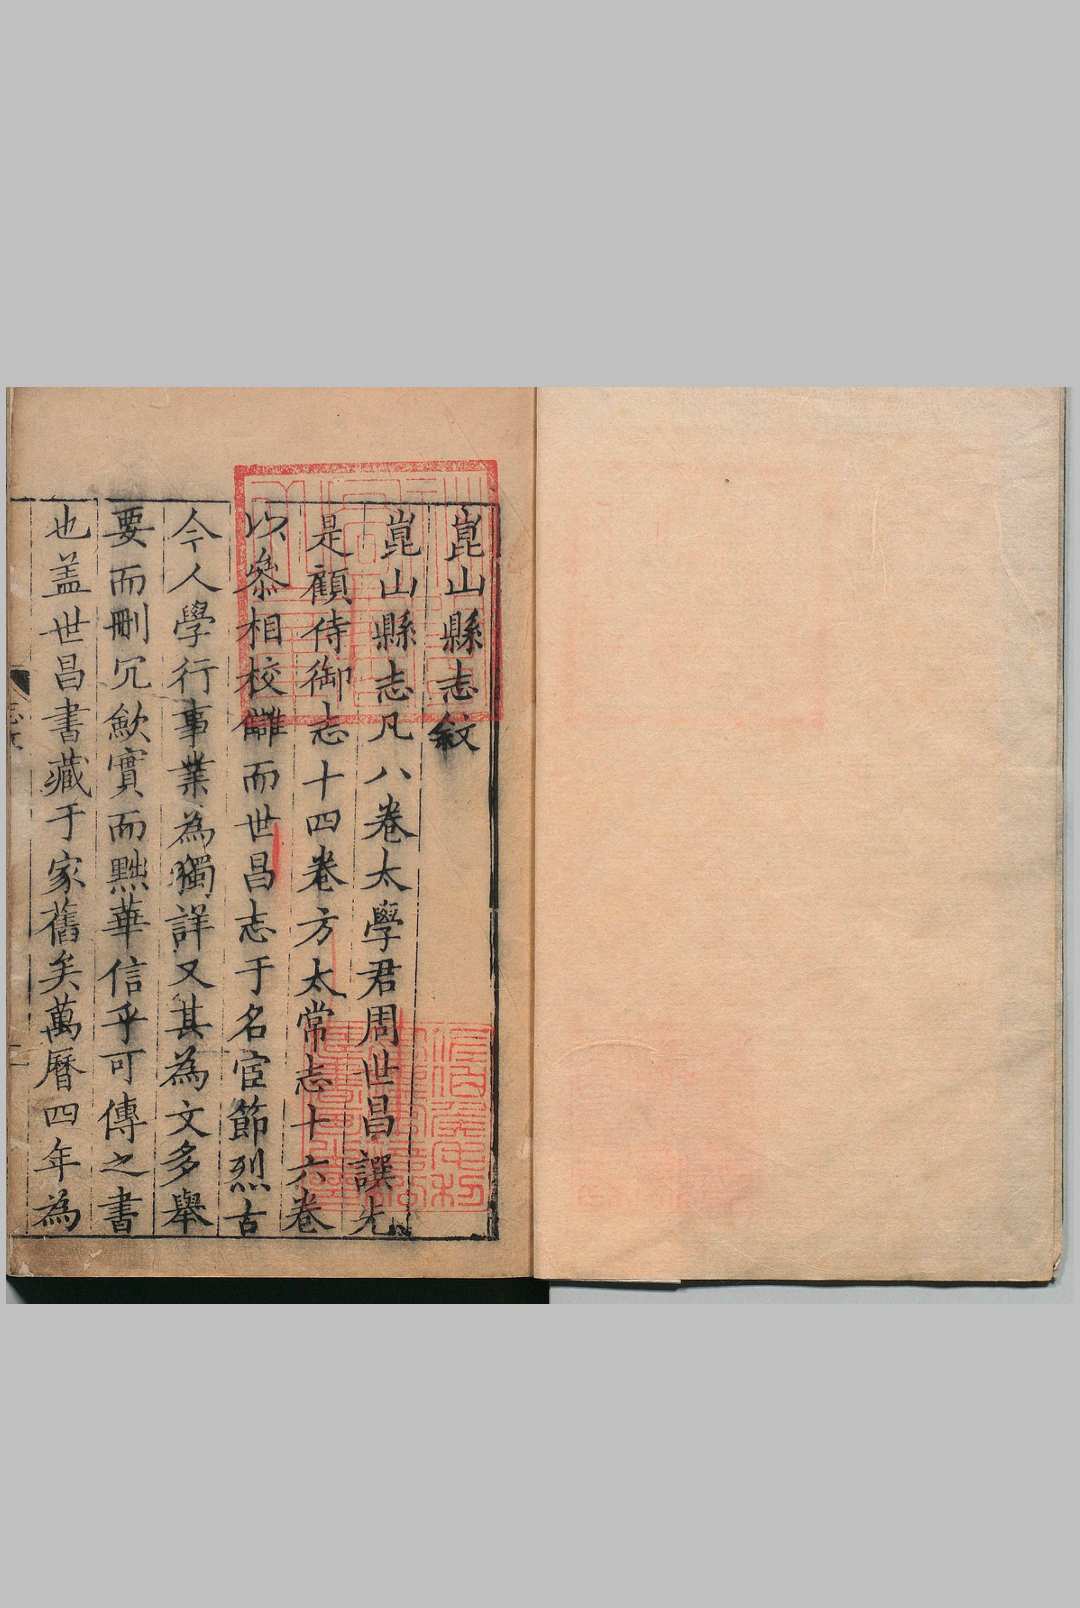 崑山縣志敘
崑山縣志凡八卷太學君周世昌譔先
是顧侍御志十四卷方太常志十六卷
以叅相校讎而世昌志于名宦節烈古
今人學行事業為獨詳又其為文多舉
要而刪冗歛實而黜華信乎可傳之書
也盖世昌書藏于家舊矣萬曆四年為